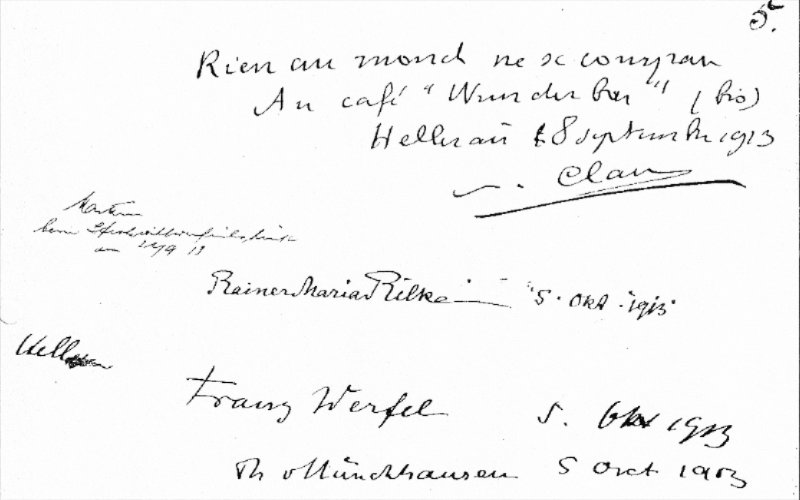 5.
Rien au mond ne se compran
Au café "Wunderbar" (bis)
Hellerau 8 septembre 1913
Clau
am 24/9 13
Rainer Maria Rilke 5. Okt. 1913.
Franz Werfel 5. Okt 1913
Th v Münchhausen 5 Oct 1913